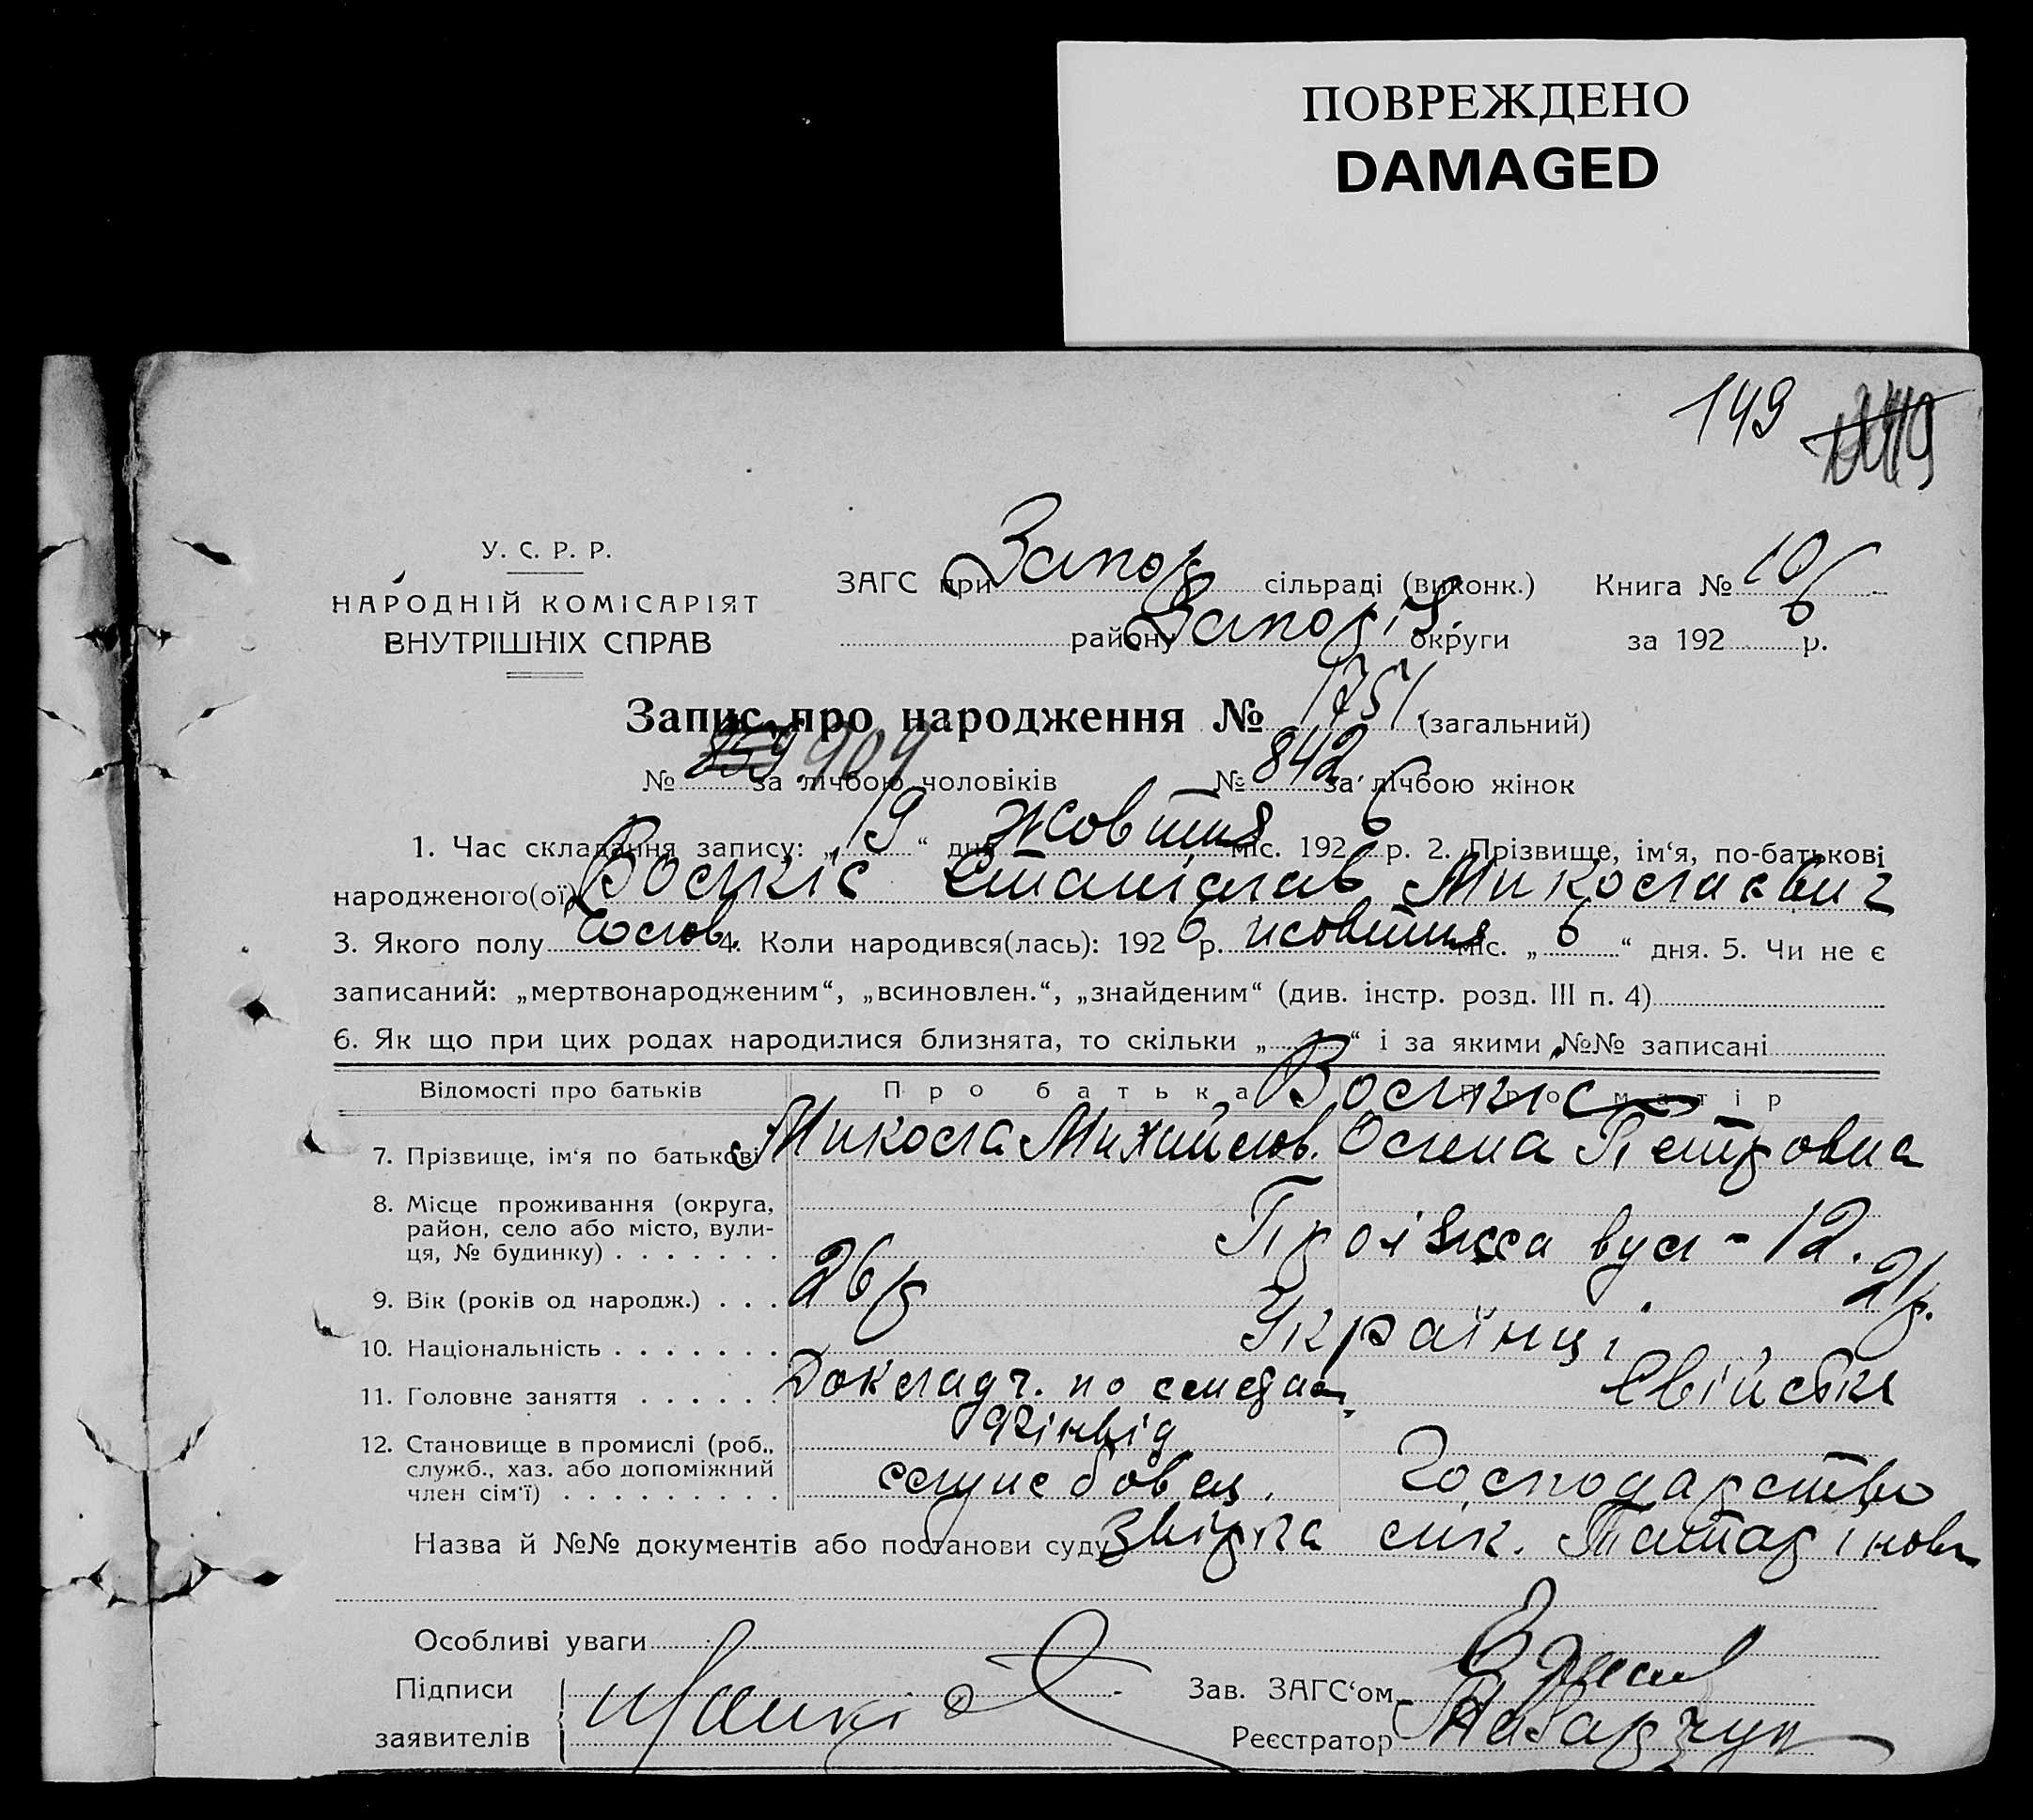 ПОВРЕЖДЕНО
DAMAGED
149
У. С. Р. Р.
НАРОДНІЙ КОМІСАРІЯТ
ВНУТРІШНІХ СПРАВ
ЗАГС при Запор сільраді (виконк.) Книга № 10
району Запоріз. округи за 192 6 р.
Запис про народження № 1751 (загальний)
№ 909 за лічбою чоловіків № 842 за лічбою жінок
1. Час складання запису: „ 19 “ дня жовтня міс. 192 6 р. 2. Прізвище, ім‘я, по-батькові
народженого(ої) Станіслав Миколаєвич
3. Якого полу чолов. 4. Коли народився(лась): 192 6 р. жовтня міс. „ 6 “ дня. 5. Чи не є
записаний: „мертвонародженим“, „всиновлен.“, „знайденим“ (див. інстр. розд. III п. 4)
6. Як що при цих родах народилися близнята, то скільки „ “ і за якими №№ записані
Відомості про батьків Про батька Про матір
7. Прізвище, ім‘я по батькові Микола Михайлов. Олена Петровна
8. Місце проживання (округа, район, село або місто, вулиця, № будинку) вул - 12.
9. Вік (років од народж.) 26 р 21 р.
10. Національність Українці
11. Головне заняття Докладч. по Свійське
фінвід
12. Становище в промислі (роб., служб., хаз. або допоміжний член сім‘ї) службовец. Господарство
Назва й №№ документів або постанови суду
Особливі уваги
Підписи
заявителів
Зав. ЗАГС‘ом
Реєстратор